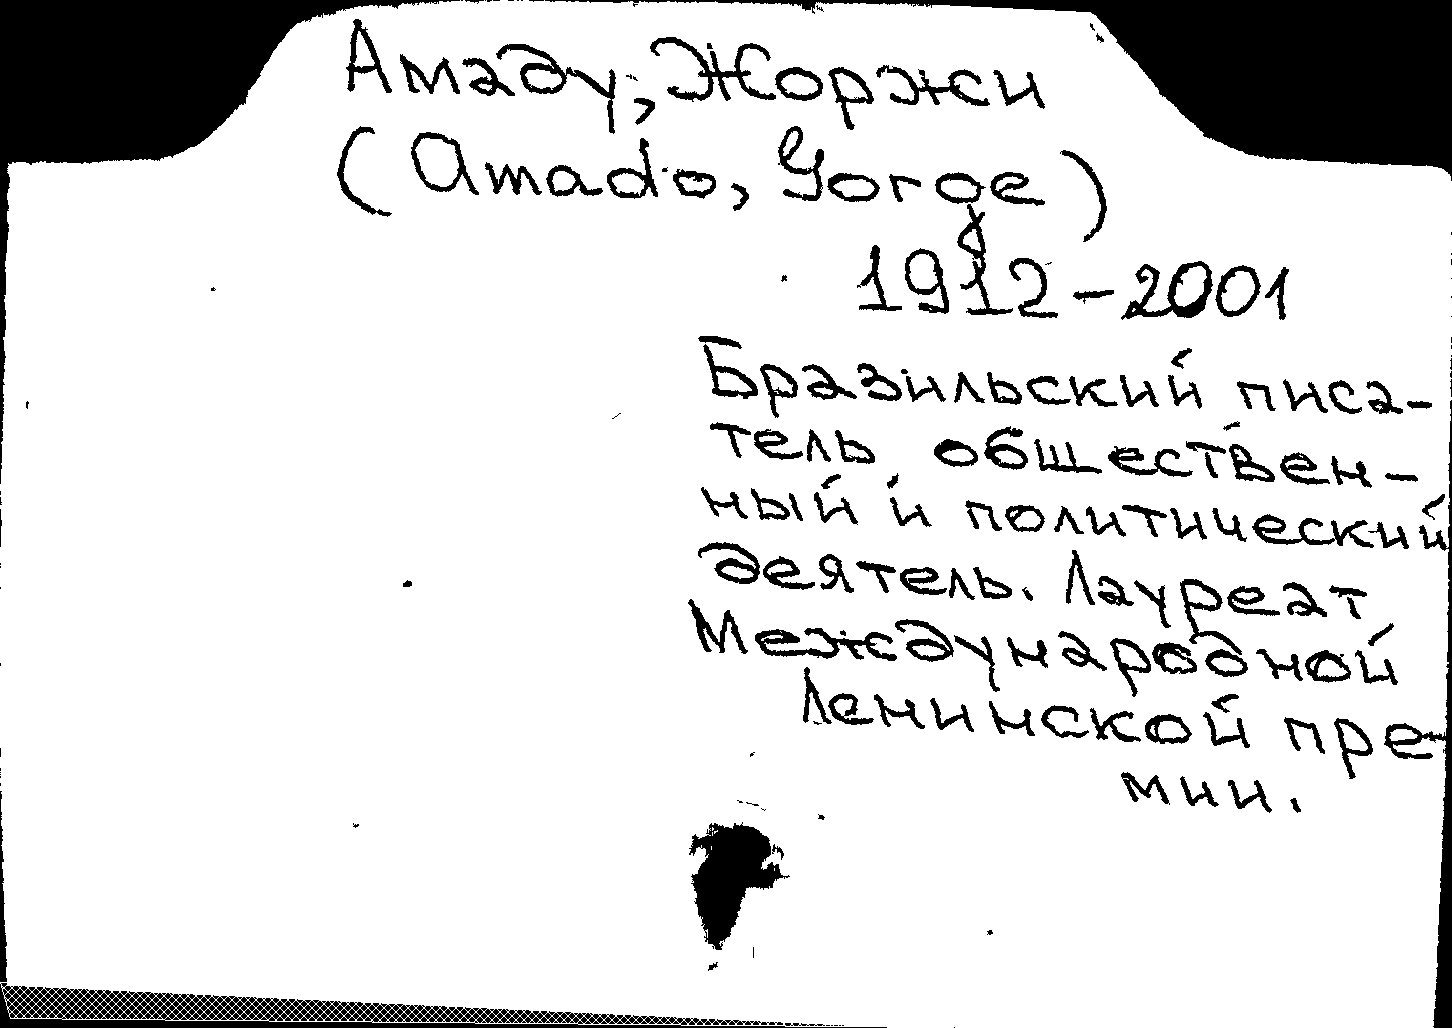 Амаду, Жоржи
(Amado, Gorge)
1912-2001
Бразильский писа-
тель обществен-
ный и политический
деятель. Лауреат
Международной
Ленинской пре-
мии.